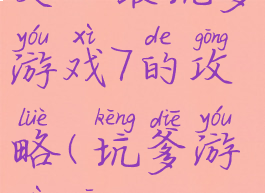 yóu xì de gōng
游戏7的攻
lüè kēng diē yóu
略(坑爹游